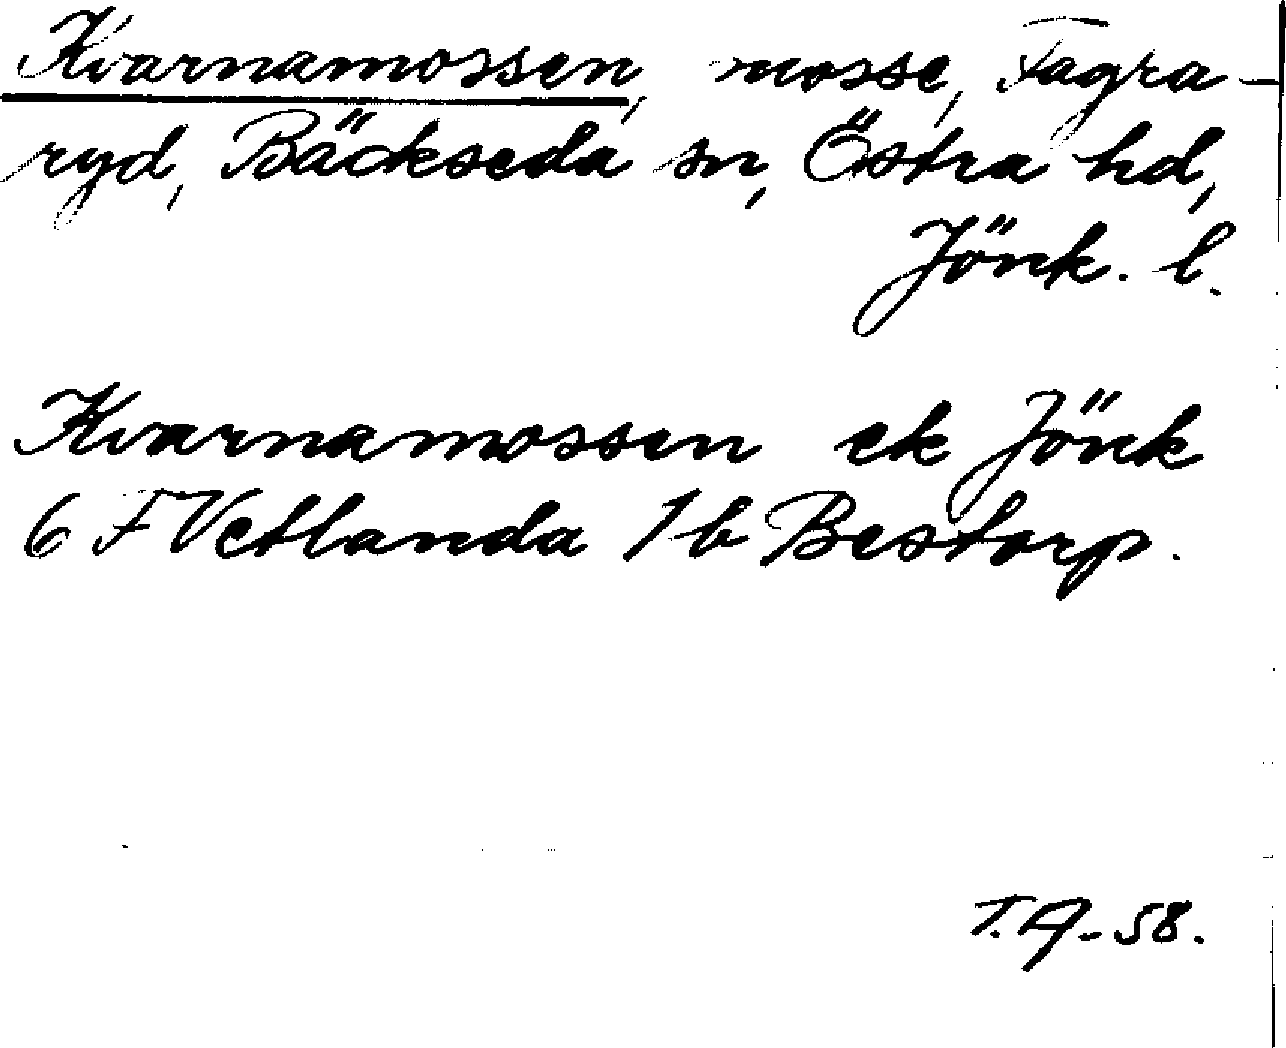 Kvarnamossen, mosse, Fagra-
ryd, Bäckseda sn, Östra hd,
Jönk. l.
Kvarnamossen ek Jönk
6 F Vetlanda 1 b Bestorp.
T.A-58.